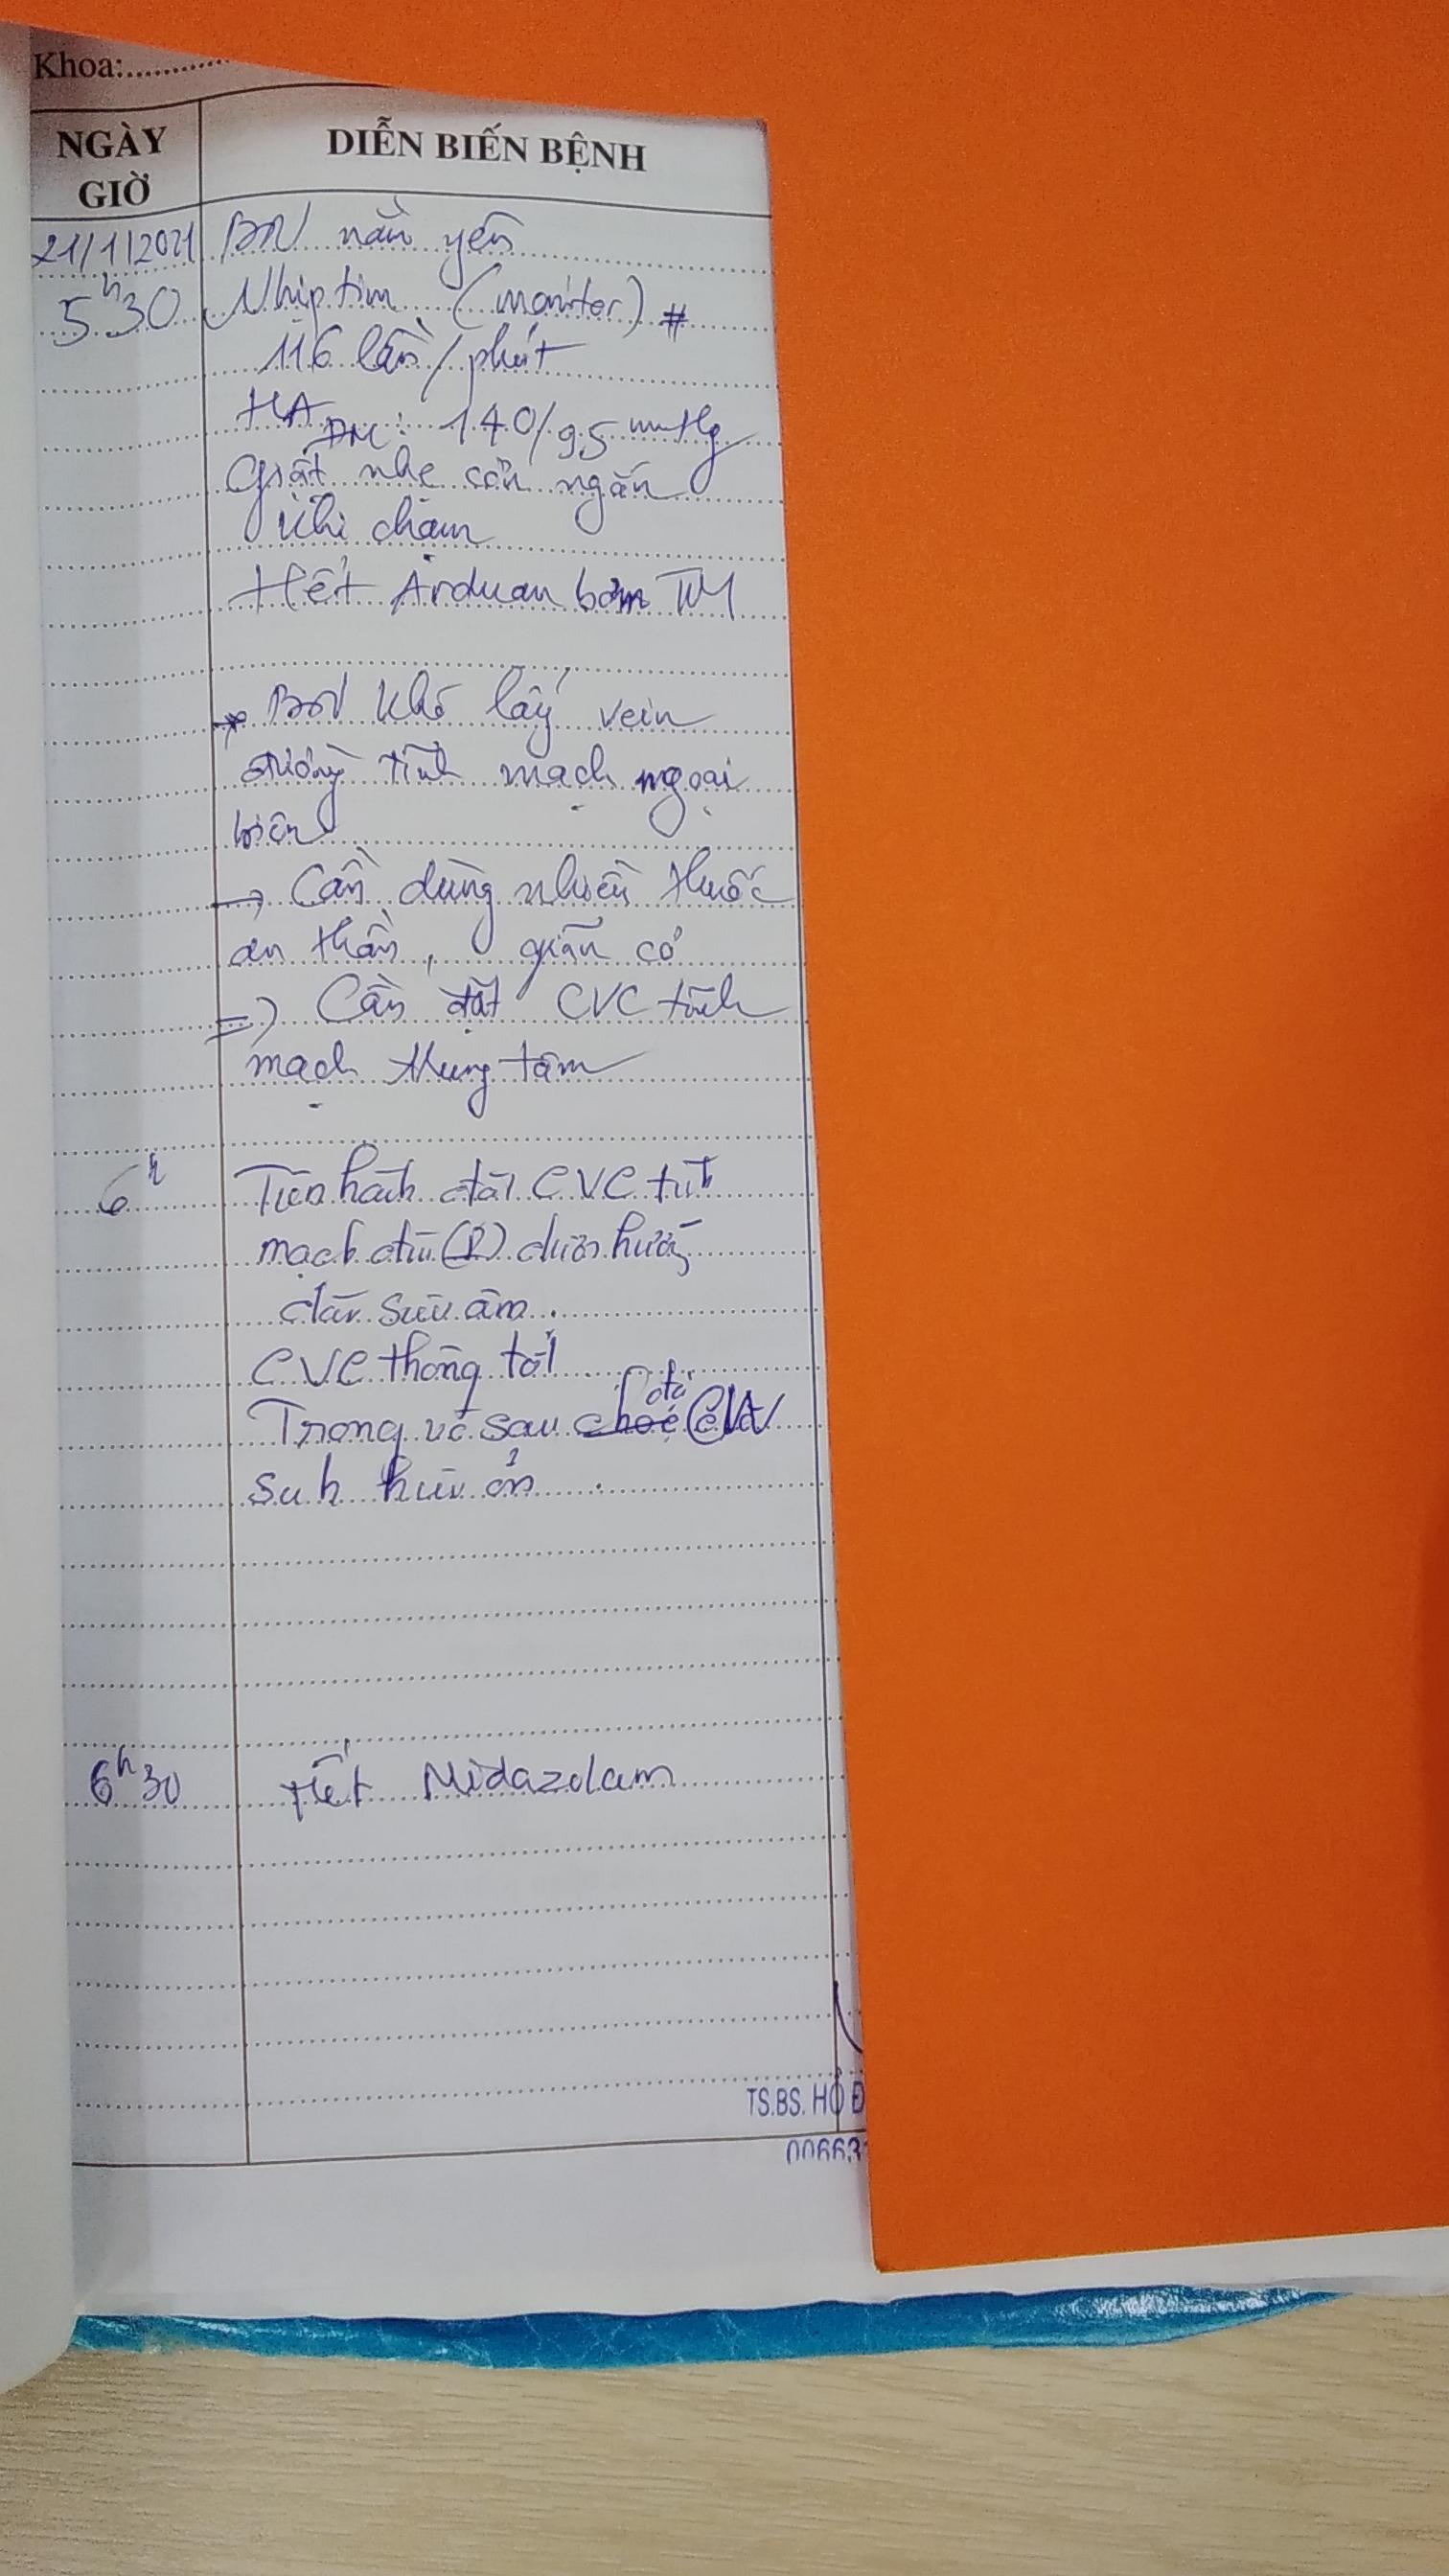 Khoa:............
NGÀY GIỜ
DIỄN BIẾN BỆNH
21/1/2021 BN nằm yên
5h30 Nhịp tim (monitor) #
116 lần/phút
HA ĐM: 140/95 mmHg
Giật nhẹ cơn ngắn
khi chạm
Hết Arduan bơm TM
BN khó lấy vein
đường tĩnh mạch ngoại
biên
→ Cần dùng nhiều thuốc
an thần, giãn cơ
=> Cần đặt CVC tĩnh
mạch trung tâm
6h Tiến hành đặt CVC tĩnh
mạch đùi (P) dưới hướng
dẫn siêu âm.
CVC thông tốt
Trong và sau đặt
sinh hiệu ổn.
6h30 Hết Midazolam
TS.BS. HỒ Đ
00663